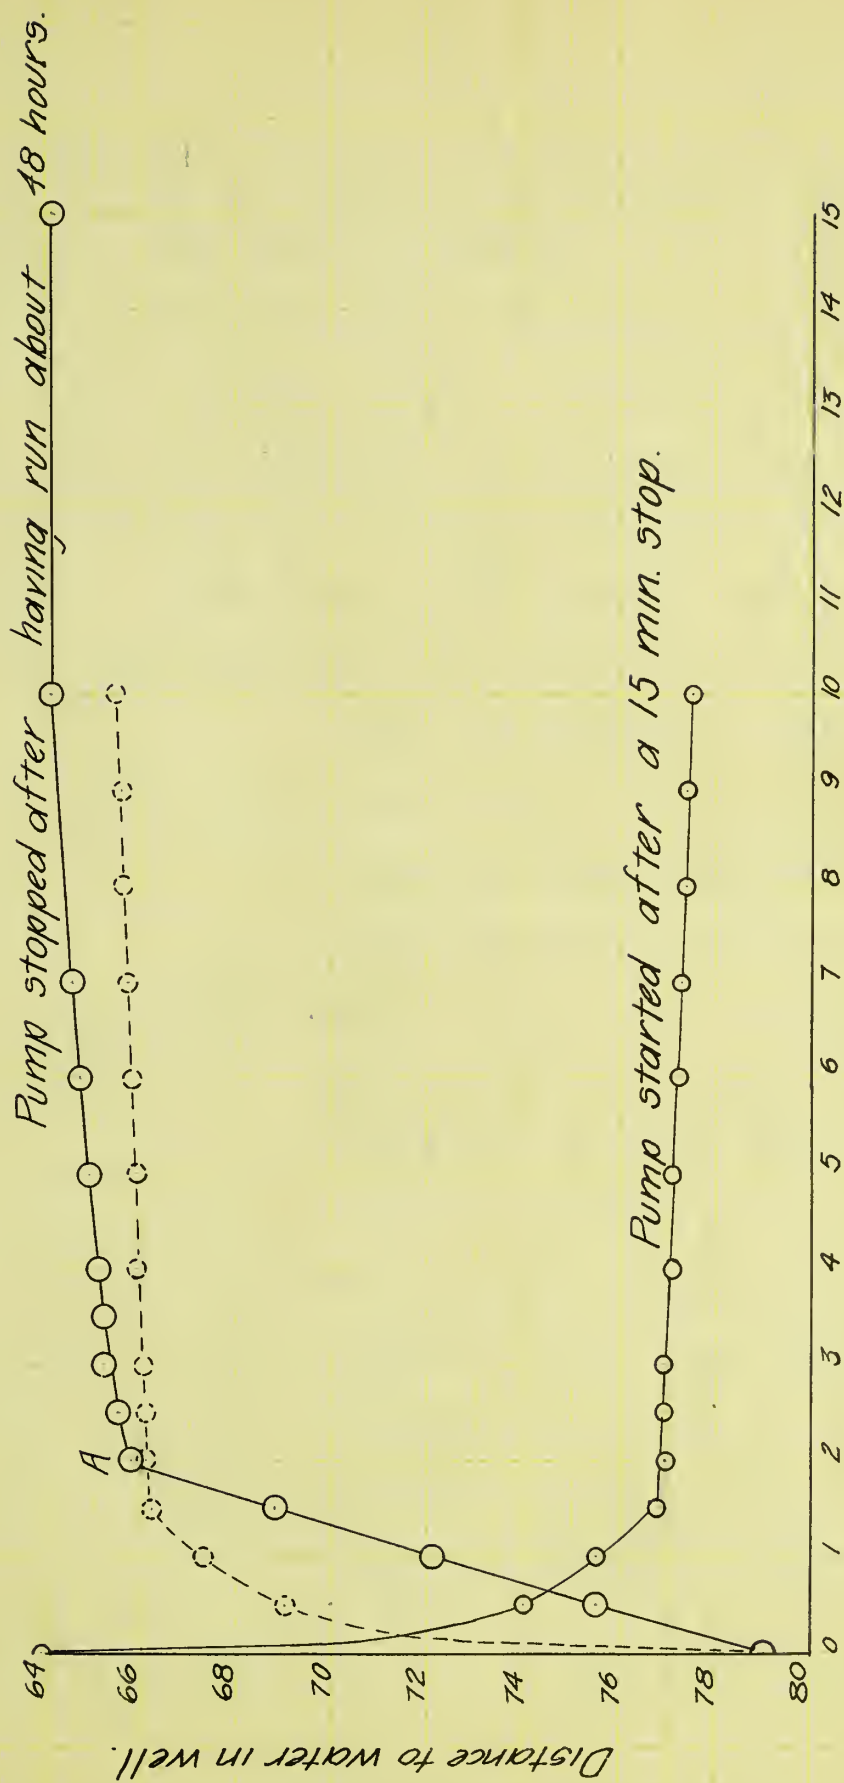 Pump stopped after having run about 48 hours.
A
Pump started after a 15 min. stop.
Distance to water in well.
64
66
68
70
72
74
76
78
80
0 1 2 3 4 5 6 7 8 9 10 11 12 13 14 15